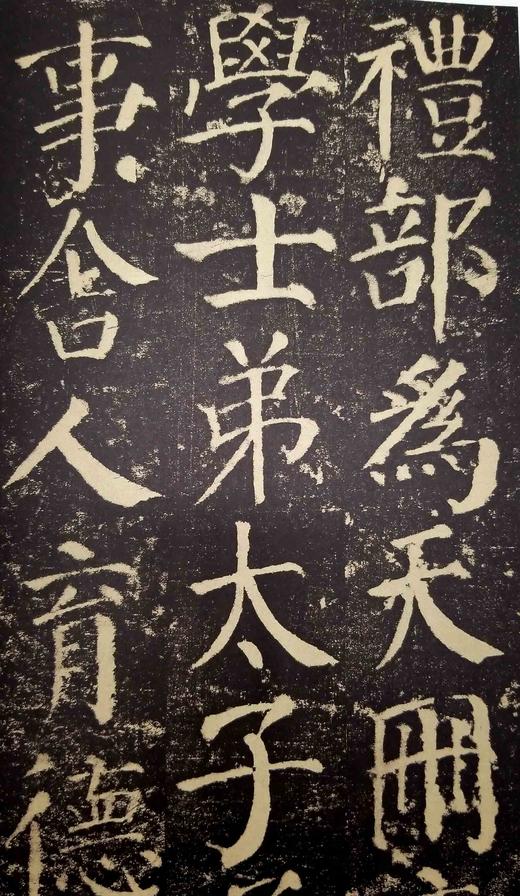 禮部爲天冊
學士弟太子
事舍人育德